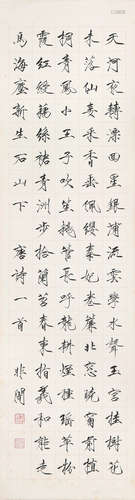 天河夜轉漂迴星銀浦流雲學水聲玉宮桂樹花
未落仙妾采香垂珮纓秦妃卷簾北窗曉窗前植
桐青鳳小王子吹笙鵝管長呼龍耕煙種瑤草粉
霞紅綬藕絲裙青洲步拾蘭苕春東指羲和能走
馬海塵新生石山下 唐詩一首 非闇